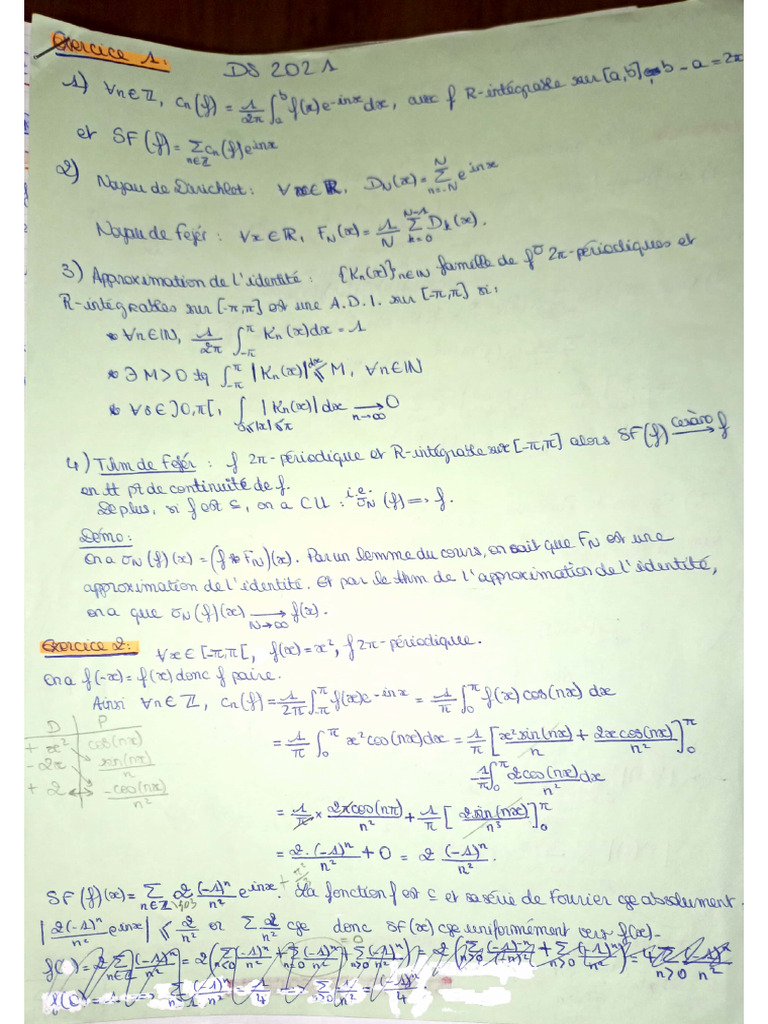 Exercice 1: DS 2021
1) ∀n∈ℤ, cₙ(f) = 1/2π ∫_a^b f(x)e^{-inx}dx, avec f R-intégrable sur [a,b], b-a=2π
et SF(f) = Σ_{n∈ℤ} cₙ(f)e^{inx}
2) Noyau de Dirichlet : ∀x∈ℝ, D_N(x) = Σ_{n=-N}^{N} e^{inx}
Noyau de Fejér : ∀x∈ℝ, F_N(x) = 1/N Σ_{k=0}^{N-1} D_k(x).
3) Approximation de l'identité : {Kₙ(x)}_{n∈ℕ} famille de f° 2π-périodiques et
R-intégrables sur [-π,π] est une A.D.I. sur [-π,π] si:
* ∀n∈ℕ, 1/2π ∫_{-π}^{π} Kₙ(x)dx = 1
* ∃M>0 tq ∫_{-π}^{π} |Kₙ(x)|dx ≤ M, ∀n∈ℕ
* ∀δ∈]0,π[, ∫_{δ≤|x|≤π} |Kₙ(x)|dx →_{n→∞} 0
4) Thm de Fejér : f 2π-périodique et R-intégrable sur [-π,π] alors SF(f) →^{Cesàro} f
en tt pt de continuité de f.
De plus, si f est C, on a CU : i.e. σ_N(f) ⟹ f.
Démo:
On a σ_N(f)(x) = (f*F_N)(x). Par un lemme du cours, on sait que F_N est une
approximation de l'identité. Et par le thm de l'approximation de l'identité,
on a que σ_N(f)(x) →_{N→∞} f(x).
Exercice 2: ∀x∈[-π,π[, f(x) = x², f 2π-périodique.
On a f(-x) = f(x) donc f paire.
Ainsi ∀n∈ℤ, cₙ(f) = 1/2π ∫_{-π}^{π} f(x)e^{-inx} = 1/π ∫_0^π f(x)cos(nx) dx
D | P
+ x² | cos(nx)
- 2x | sin(nx)/n
+ 2 | -cos(nx)/n²
= 1/π ∫_0^π x²cos(nx)dx = 1/π [x²sin(nx)/n + 2xcos(nx)/n²]_0^π
- 1/π ∫_0^π 2cos(nx)/n² dx
= 1/π × 2πcos(nπ)/n² + 1/π [2sin(nx)/n³]_0^π
= 2·(-1)ⁿ/n² + 0 = 2 (-1)ⁿ/n².
SF(f)(x) = Σ_{n∈ℤ\{0}} 2(-1)ⁿ/n² e^{inx} + π²/3. La fonction f est C et sa série de Fourier cge absolument
|2(-1)ⁿ/n² e^{inx}| ≤ 2/n² or Σ 2/n² cge donc SF(x) cge uniformément vers f(x).